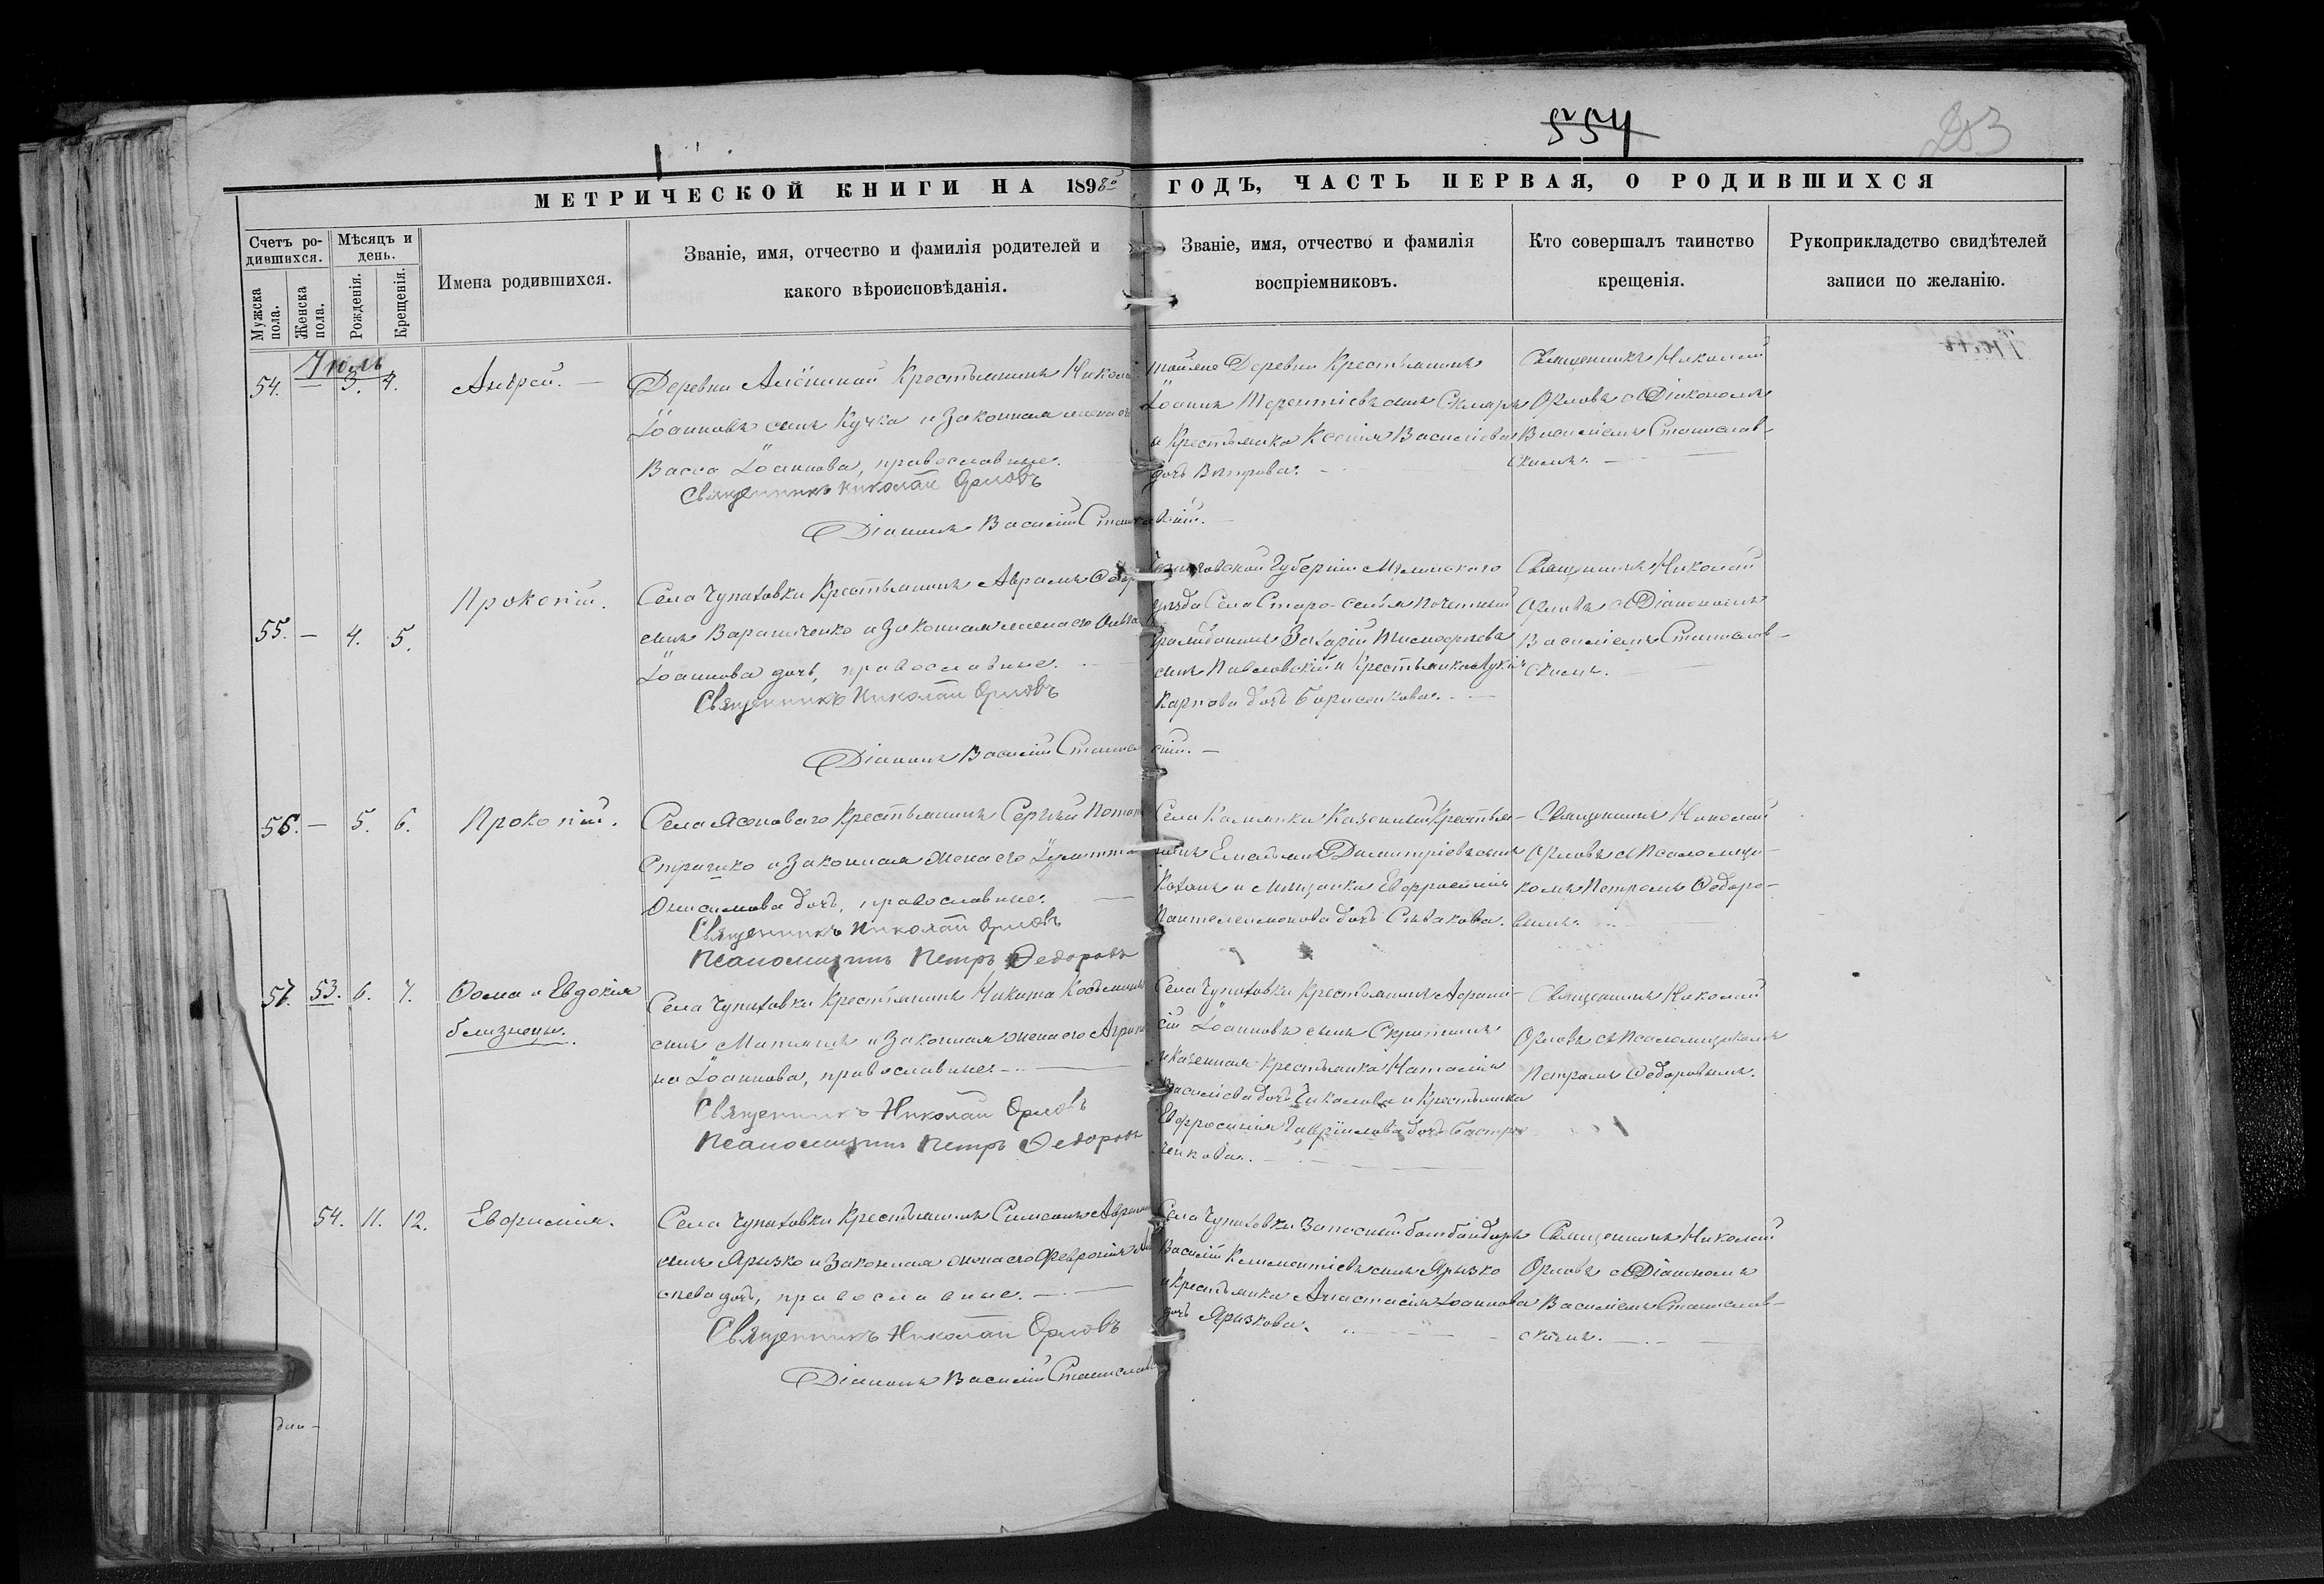 554
253
МЕТРИЧЕСКОЙ КНИГИ НА 1898й ГОДЪ, ЧАСТЬ ПЕРВАЯ, О РОДИВШИХСЯ
Счетъ ро-
дившихся.
Мужска пола.
Женска пола.
Мѣсяцъ и
день.
Рожденія.
Крещенія.
Имена родившихся.
Званіе, имя, отчество и фамилія родителей и
какого вѣроисповѣданія.
Званіе, имя, отчество и фамилія
воспріемниковъ.
Кто совершалъ таинство
крещенія.
Рукоприкладство свидѣтелей
записи по желанію.
Іюль
54. — 3. 4.
Андрей. —
Деревни Алёниной Крестьянинъ Никол
Іоанновъ сынъ Кучка и законная жена его
Васса Іоаннова, православные.
Священникъ Николай Орловъ
Діаконъ Василій Станиславскій. —
тойже Деревни Крестьянинъ
Іоаннъ Терентіевъ сынъ Скляръ
и Крестьянка Ксенія Василіева
дочь
Священникъ Николай
Орловъ съ Діакономъ
Василіемъ Станислав-
скимъ. —
55. — 4. 5.
Прокопій.
Села Чупаховки Крестьянинъ Аврамъ
сынъ и законная жена его
Іоаннова дочь, православные. —
Священникъ Николай Орловъ
Діаконъ Василій Станиславскій. —
Черниговской Губерніи Мглинскаго
уѣзда Села Почетный
Гражданинъ Захарій
сынъ Павловскій и Крестьянка
Карпова дочь Борисенкова. —
Священникъ Николай
Орловъ съ Діакономъ
Василіемъ Станислав-
скимъ. —
56. — 5. 6.
Прокопій.
Села Ясеноваго Крестьянинъ Сергѣй
и законная жена его Іулитта
Онисимова дочь, православные. —
Священникъ Николай Орловъ
Псаломщикъ Петръ Федоровъ
Села Казенный Крестья-
нинъ Емельянъ Димитріевъ сынъ
и мѣщанка Евфросинія
Пантелеимонова дочь Сливакова.
Священникъ Николай
Орловъ съ Псаломщи-
комъ Петромъ Федоро-
вымъ.
57. 53. 6. 7.
Ѳома и Евдокія
близнецы.
Села Чупаховки Крестьянинъ Никита
сынъ и законная жена его Агрипи
на Іоаннова, православные. —
Священникъ Николай Орловъ
Псаломщикъ Петръ Федоровъ
Села Чупаховки Крестьянинъ Аѳана-
сій Іоанновъ сынъ
и казенная Крестьянка Наталія
Василіева дочь Чикалова и Крестьянка
Евфросинія Гавріилова дочь
ченкова. —
Священникъ Николай
Орловъ съ Псаломщикомъ
Петромъ Федоровымъ.
54. 11. 12.
Евфимія.
Села Чупаховки Крестьянинъ Симеонъ
сынъ Ярызко и законная жена его Февронія
дочь, православные. —
Священникъ Николай Орловъ
Діаконъ Василій Станислав
Села Чупаховки Запасный бомбандиръ
Василій Климентіевъ сынъ Ярызко
и Крестьянка Анастасія Іоаннова
дочь Ярызкова.
Священникъ Николай
Орловъ съ Діакономъ
Василіемъ Станислав-
скимъ. —